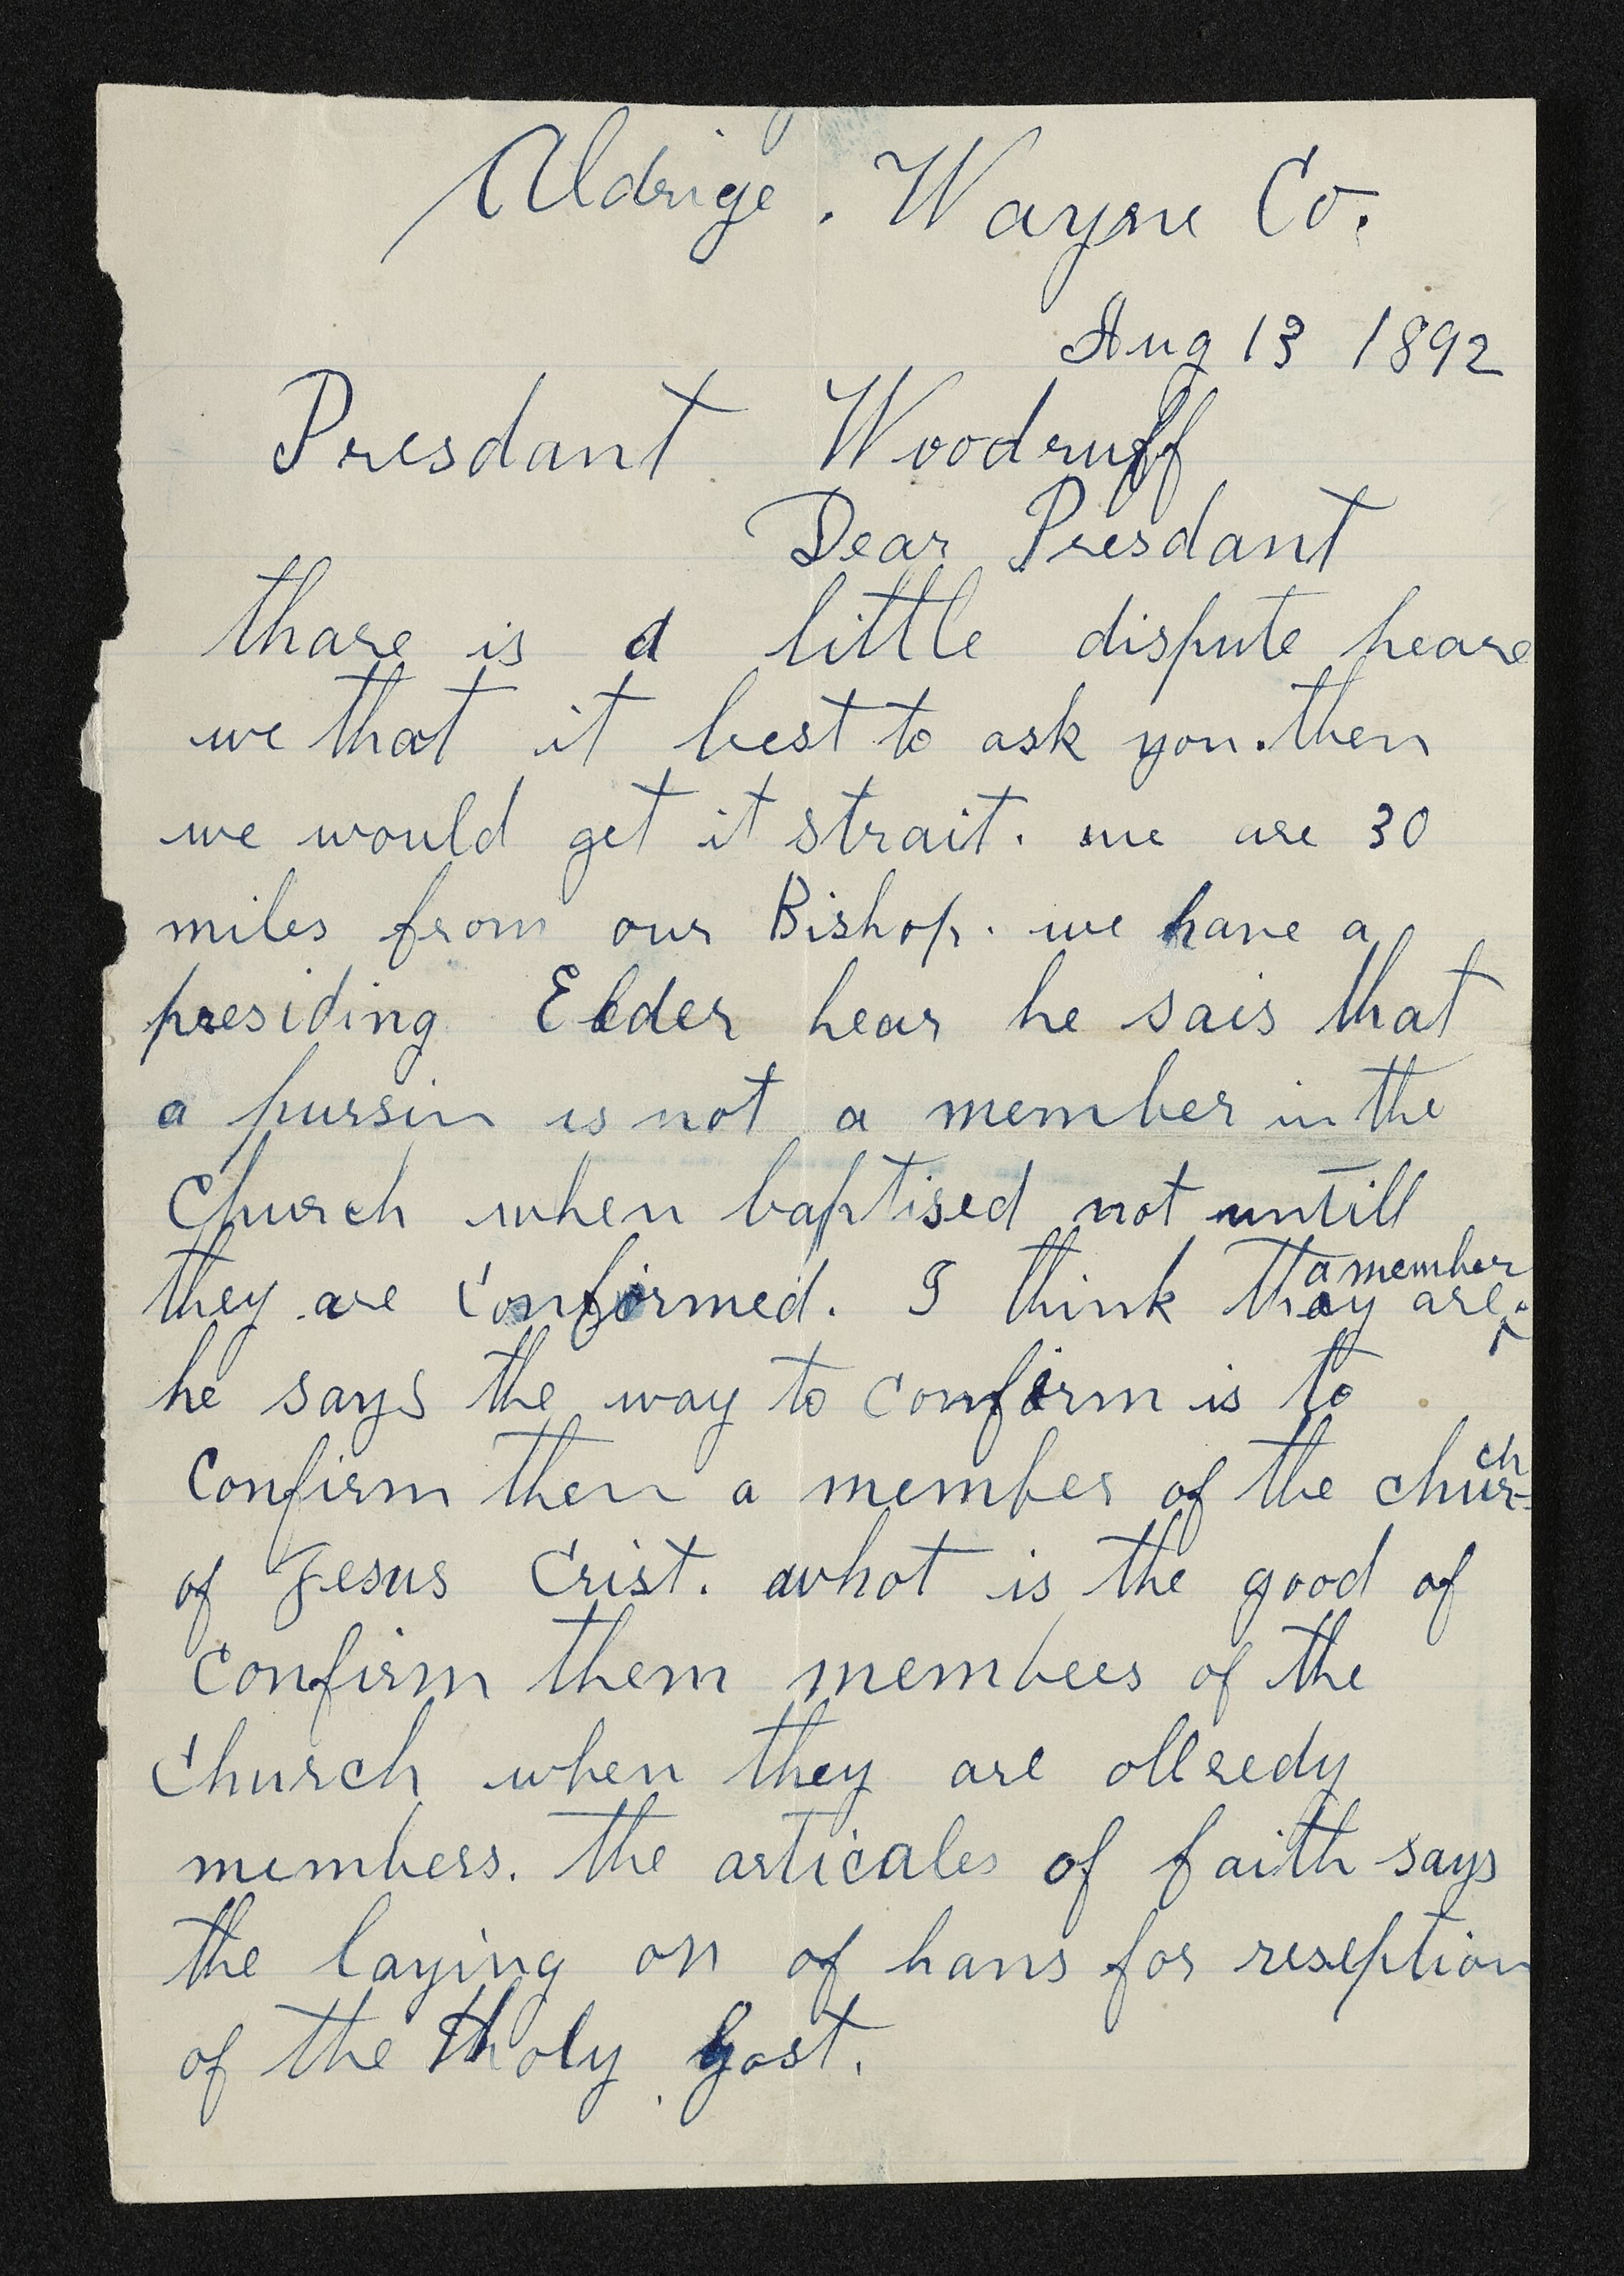 Aldrige. Wayne Co.
Aug 13 1892
Presdant Woodruff
Dear Presdant
thare is a little dispute heare
we that it best to ask you. then
we would get it strait. we are 30
miles from our Bishop. we have a
presiding Elder hear he sais that
a pursin is not a member in the
Church when baptised not untill
they are Confirmed. I think thay are ^a member.
he says the way to confirm is to
Confirm then a member of the church
of Jesus Crist. whot is the good of
Confirm them membees of the
Church when they are ollredy
members. the articales of faith says
the laying on of hans for reseption
of the Holy Gost.